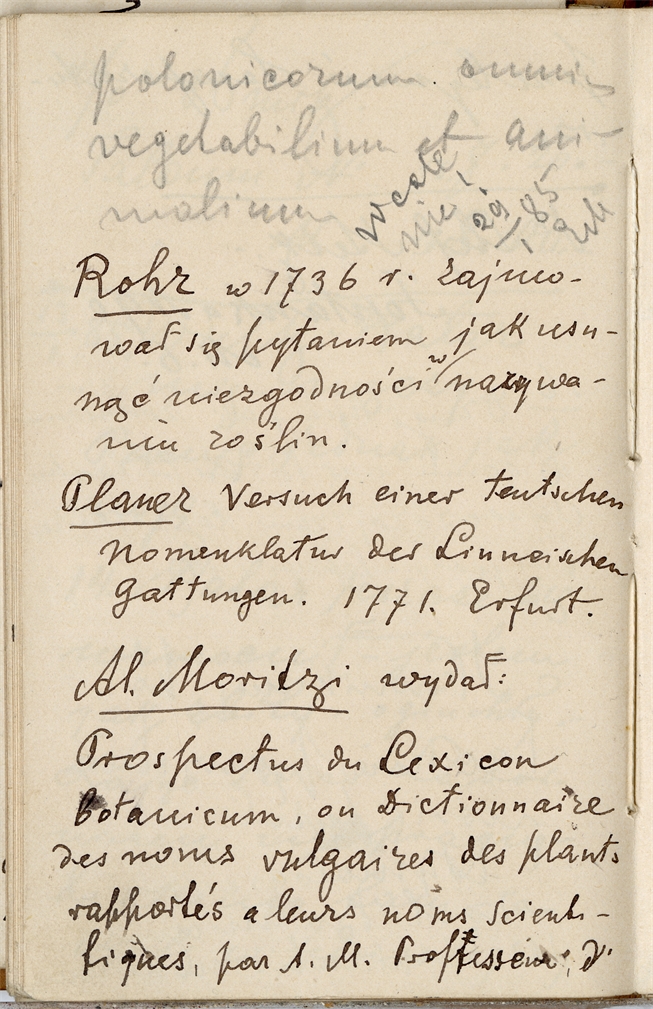 polonicorum omniu
vegetabilium et ani-
malium
wcale
nie!
29/1 85
Rohr w 1736 r. zajmo-
wał się pytaniem jak usu-
nąć niezgodności w nazywa-
niu roślin.
Planer Versuch einer teutschen
Nomenklatur der Linneischen
Gattungen. 1771. Erfurt.
Al. Moritzi wydał:
Prospectus du Lexicon
botanicum, ou Dictionnaire
des noms vulgaires des plants
rapportés a leurs noms scienti-
fiques, par A. M. Professeur d'